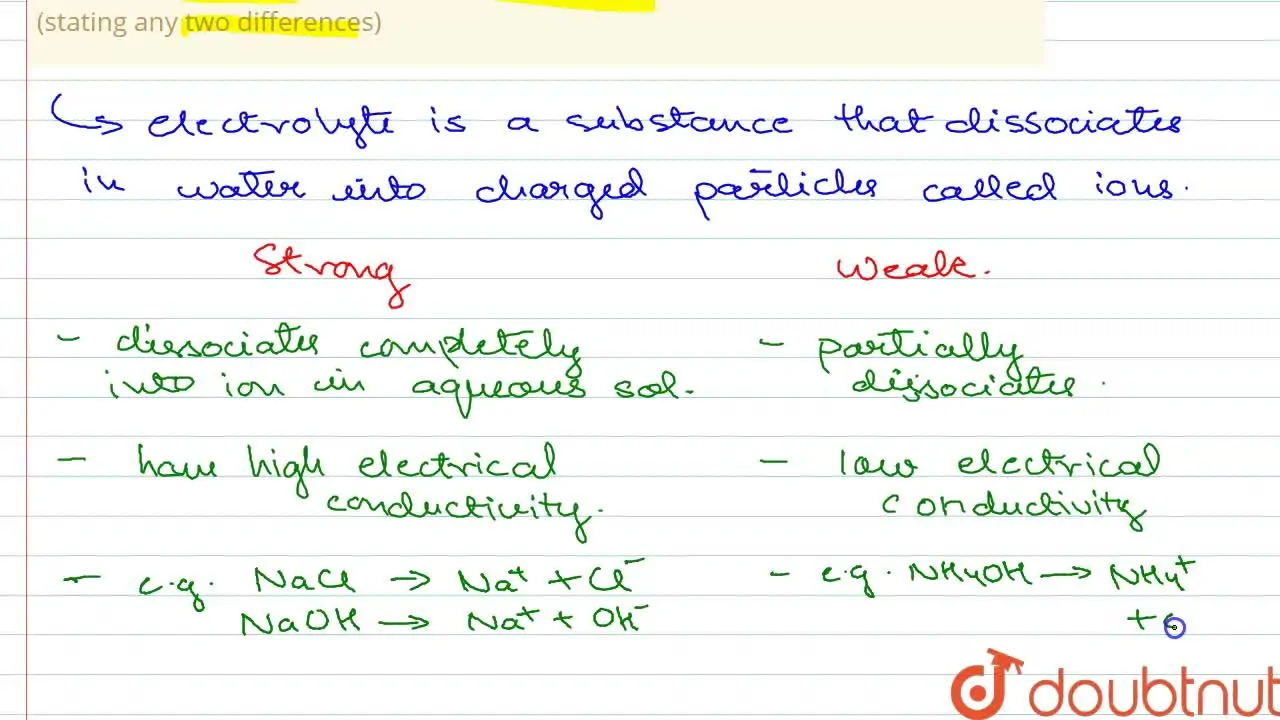 (stating any two differences)
↳ electrolyte is a substance that dissociates
in water into charged particles called ions.
Strong Weak.
- dissociates completely - partially
into ion in aqueous sol. dissociates.
- have high electrical - low electrical
conductivity. conductivity
- e.g. NaCl → Na⁺ + Cl⁻ - e.g. NH4OH → NH4⁺
NaOH → Na⁺ + OH⁻ +
doubtnut